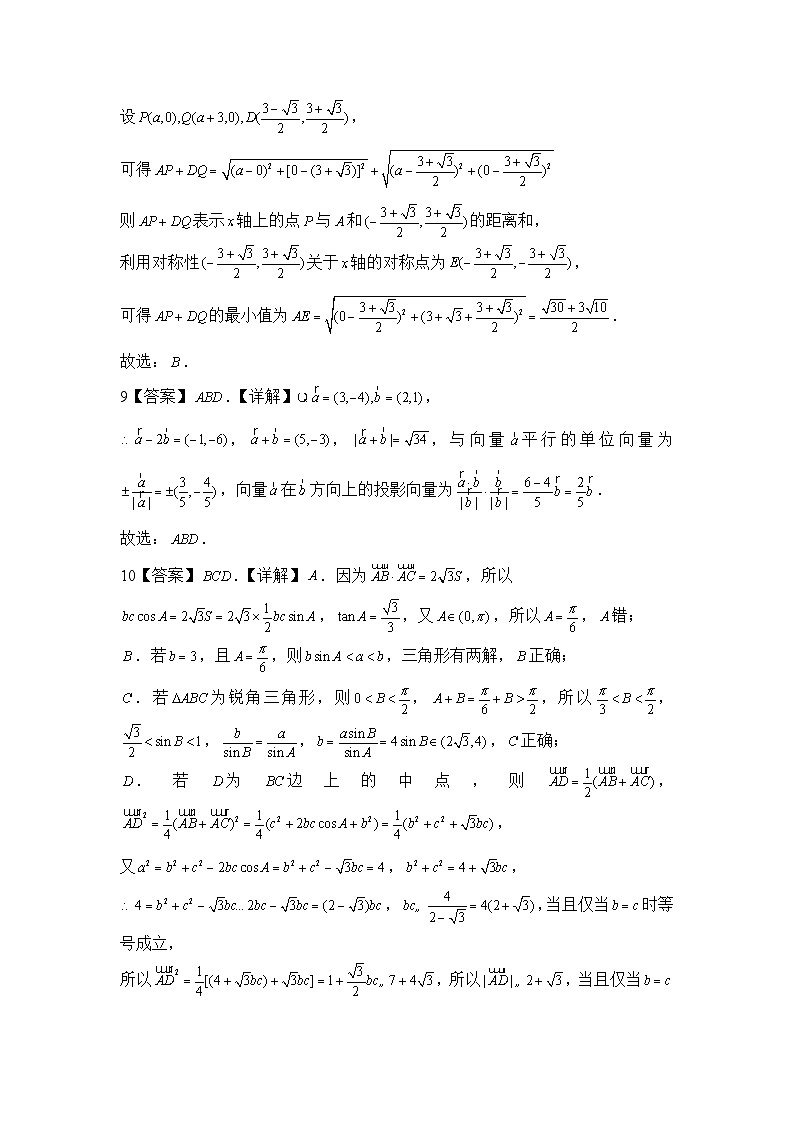 设 P(a,0),Q(a+3,0),D((3-√3)/2,(3+√3)/2),
可得 AP+DQ=√((a-0)²+[0-(3+√3)]²)+√((a-(3+√3)/2)²+(0-(3+√3)/2)²)
则 AP+DQ表示x轴上的点P与A和(-(3+√3)/2,(3+√3)/2)的距离和,
利用对称性(-(3+√3)/2,(3+√3)/2)关于x轴的对称点为E(-(3+√3)/2,-(3+√3)/2),
可得 AP+DQ的最小值为 AE=√((0-(3+√3)/2)²+(3+√3+(3+√3)/2)²)=(√30+3√10)/2.
故选:B.
9【答案】ABD.【详解】Q a=(3,-4),b=(2,1),
∴ a-2b=(-1,-6), a+b=(5,-3), |a+b|=√34,与向量a平行的单位向量为
±a/|a|=±(3/5,-4/5),向量a在b方向上的投影向量为(a·b)/|b|·b/|b|=(6-4)/5 b=2/5 b.
故选:ABD.
10【答案】BCD.【详解】A.因为AB·AC=2√3S,所以
bc cos A=2√3S=2√3×1/2 bc sin A, tan A=√3/3,又A∈(0,π),所以A=π/6,A错;
B.若b=3,且A=π/6,则b sin A<a<b,三角形有两解,B正确;
C.若ΔABC为锐角三角形,则0<B<π/2, A+B=π/6+B>π/2,所以π/3<B<π/2,
√3/2<sin B<1, b/sin B=a/sin A, b=a sin B/sin A=4 sin B∈(2√3,4),C正确;
D.若D为BC边上的中点,则AD=1/2(AB+AC),
AD²=1/4(AB+AC)²=1/4(c²+2bc cos A+b²)=1/4(b²+c²+√3bc),
又a²=b²+c²-2bc cos A=b²+c²-√3bc=4, b²+c²=4+√3bc,
∴ 4=b²+c²-√3bc...2bc-√3bc=(2-√3)bc, bc„ 4/(2-√3)=4(2+√3),当且仅当b=c时等
号成立,
所以AD²=1/4[(4+√3bc)+√3bc]=1+√3/2 bc„ 7+4√3,所以|AD|„ 2+√3,当且仅当b=c